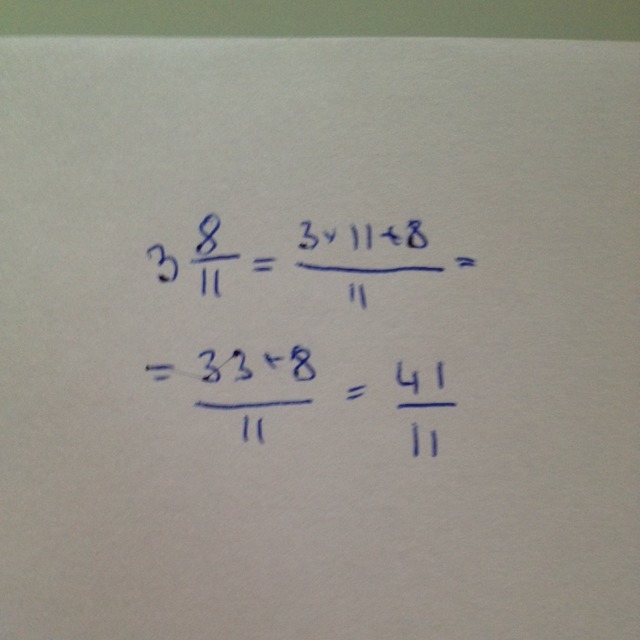 3 8/11 = (3 × 11 + 8)/11 =
= (33 + 8)/11 = 41/11